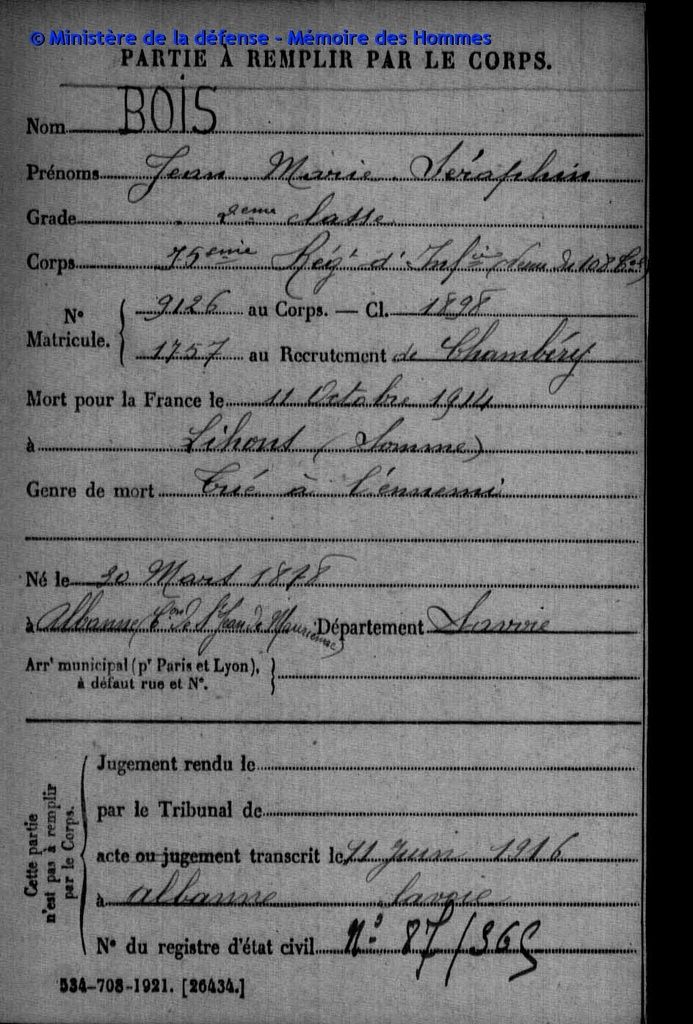 © Ministère de la défense - Mémoire des Hommes
PARTIE A REMPLIR PAR LE CORPS.
Nom BOIS
Prénoms Jean Marie Séraphin
Grade 2ème classe
Corps 75ème Régt d'Infie (Venu du 108 Bon)
No Matricule. { 9126 au Corps. — Cl. 1898
1757 au Recrutement de Chambéry
Mort pour la France le 11 Octobre 1914
à Lihons (Somme)
Genre de mort Tué à l'ennemi
Né le 20 Mars 1878
à Albanne (Con de St Jean de Maurienne) Département Savoie
Arrt municipal (pr Paris et Lyon),
à défaut rue et No. }
Cette partie
n'est pas à remplir
par le Corps.
Jugement rendu le
par le Tribunal de
acte ou jugement transcrit le 11 Juin 1916
à albanne Savoie
No du registre d'état civil No 87/365
534-708-1921. [26434.]